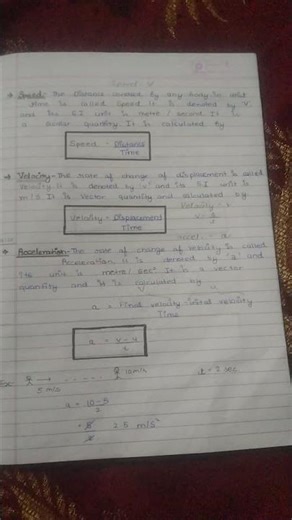 Speed: V
→ Speed: The distance covered by any body in unit
time is called Speed. It is denoted by V.
and its SI unit is metre / second. It is
a scalar quantity. It is calculated by
Speed = Distance
Time
→ Velocity:- The rate of change of displacement is called
Velocity. It is denoted by 'v' and its SI unit is
m/s. It is Vector quantity and calculated by.
Velocity = Displacement
Time
→ Acceleration:- The rate of change of velocity is called
Acceleration. It is denoted by 'a' and
its unit is metre/sec². It is a vector
quantity and it is calculated by
a = Final velocity - Initial velocity
Time
a = v-u
t
Ex:
→ ...... 10m/s t = 2 sec.
5 m/s
a = 10-5
2
= 5 2.5 m/s²
2